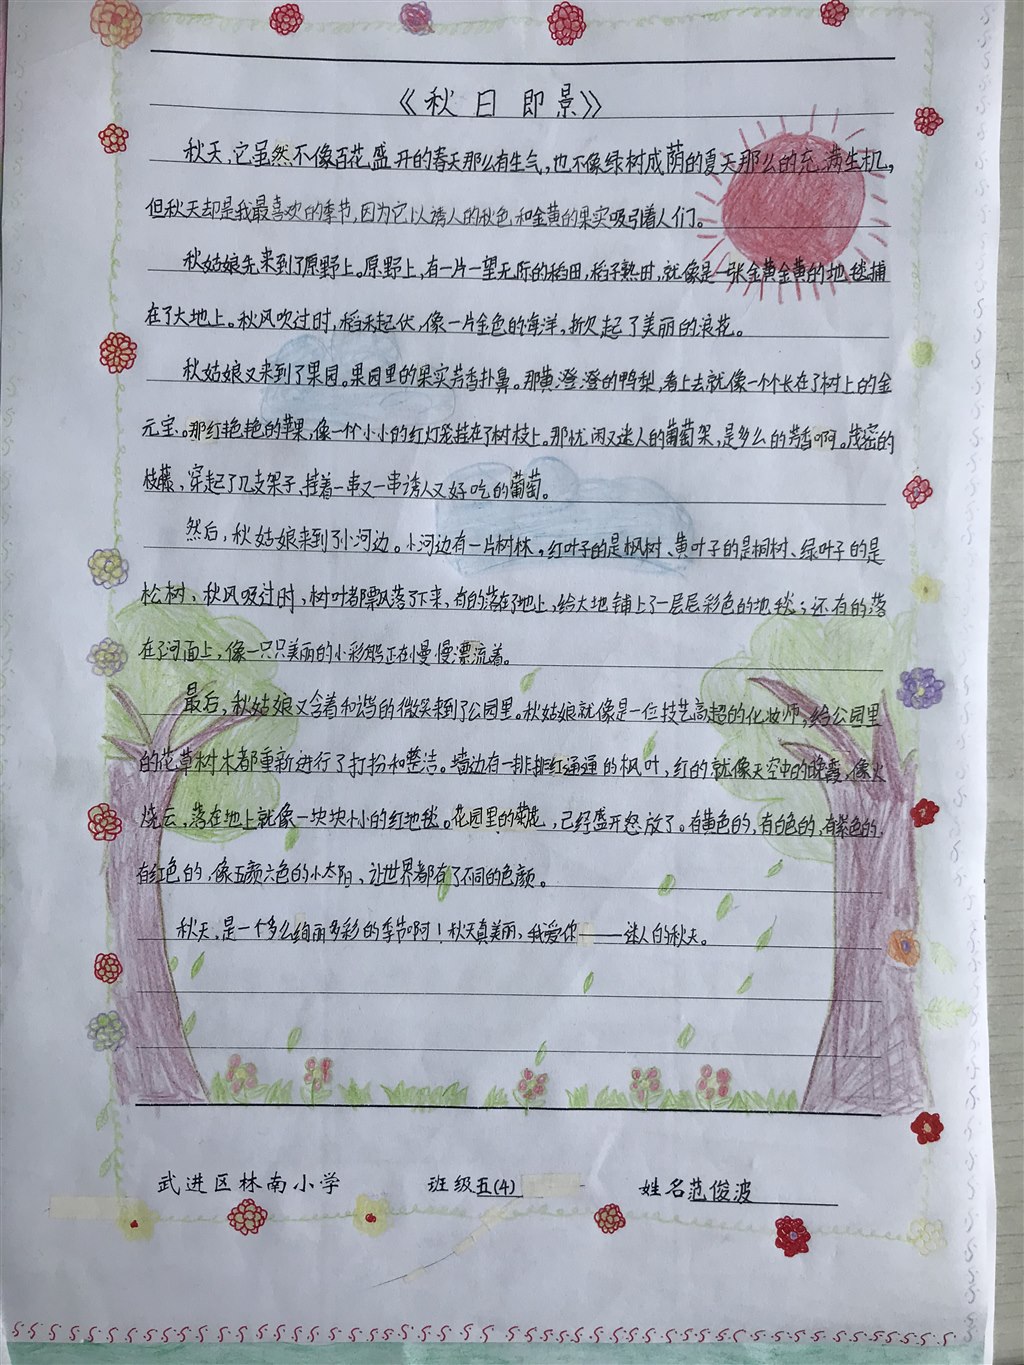 《秋日即景》
秋天，它虽然不像百花盛开的春天那么有生气，也不像绿树成荫的夏天那么的充满生机，
但秋天却是我最喜欢的季节，因为它以诱人的秋色和金黄的果实吸引着人们。
秋姑娘先来到了原野上。原野上，有一片一望无际的稻田，稻子熟时，就像是一张金黄金黄的地毯铺
在了大地上。秋风吹过时，稻禾起伏，像一片金色的海洋，掀起了美丽的浪花。
秋姑娘又来到了果园。果园里的果实芳香扑鼻。那黄澄澄的鸭梨，看上去就像一个个长在了树上的金
元宝。那红艳艳的苹果，像一个个小小的红灯笼挂在了树枝上。那优闲又迷人的葡萄架，是多么的芳香啊。茂密的
枝藤，穿起了几支架子，挂着一串又一串诱人又好吃的葡萄。
然后，秋姑娘来到了小河边。小河边有一片树林，红叶子的是枫树、黄叶子的是桐树、绿叶子的是
松树、秋风吸过时，树叶都飘落了下来，有的落在了地上，给大地铺上了一层层彩色的地毯；还有的落
在了河面上，像一只只美丽的小彩船正在慢慢漂流着。
最后，秋姑娘又含着和谐的微笑来到了公园里。秋姑娘就像是一位技艺高超的化妆师，给公园里
的花草树木都重新进行了打扮和整洁。墙边有一排排红通通的枫叶，红的就像天空中的晚霞，像火
烧云，落在地上就像一块块小小的红地毯。花园里的菊花，已经盛开怒放了。有黄色的，有白色的，有紫色的，
有红色的，像五颜六色的小太阳，让世界都有了不同的色颜。
秋天，是一个多么绚丽多彩的季节啊！秋天真美丽，我爱你——迷人的秋天。
武进区林南小学 班级五(4) 姓名范俊波